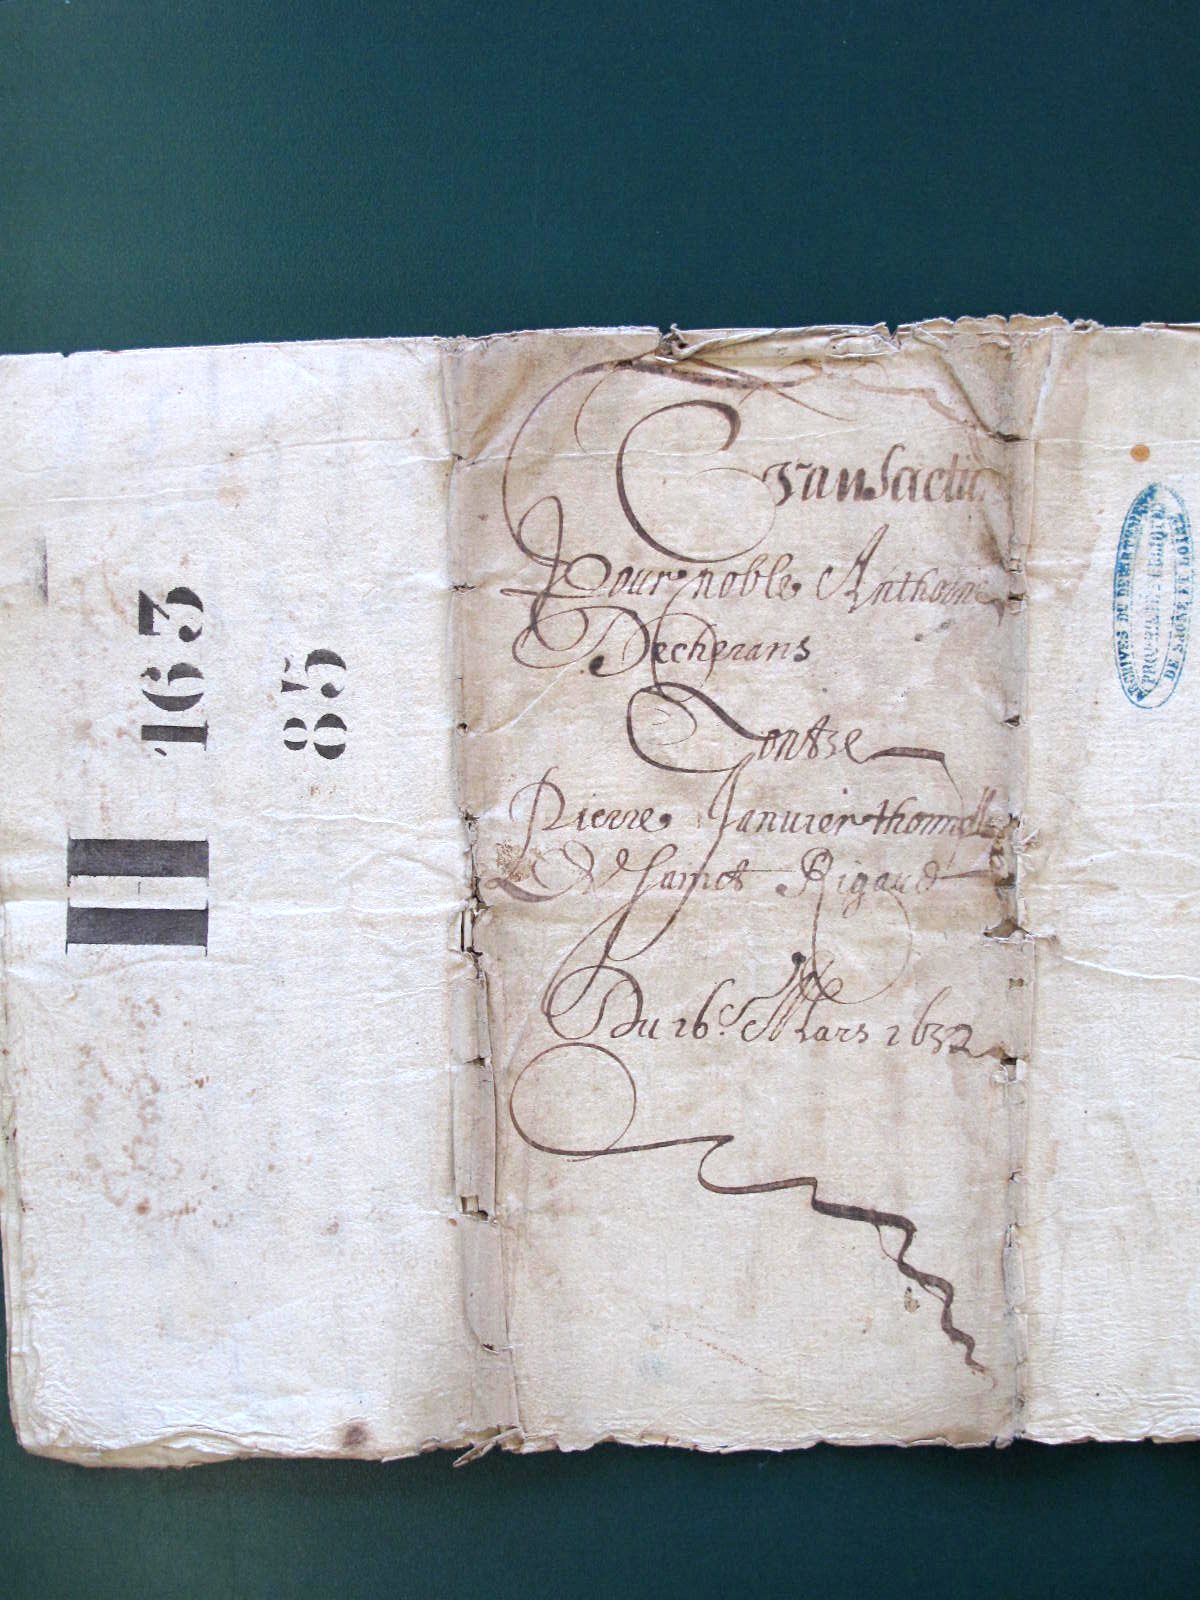 H
163
85
Transactio
Pour noble Anthoine
Decherans
Contre
Pierre Janvier
De Sainct Rigaud
Du 16e Mars 1632
ARCHIVES DU DÉPARTEMENT
DE SAONE ET LOIRE